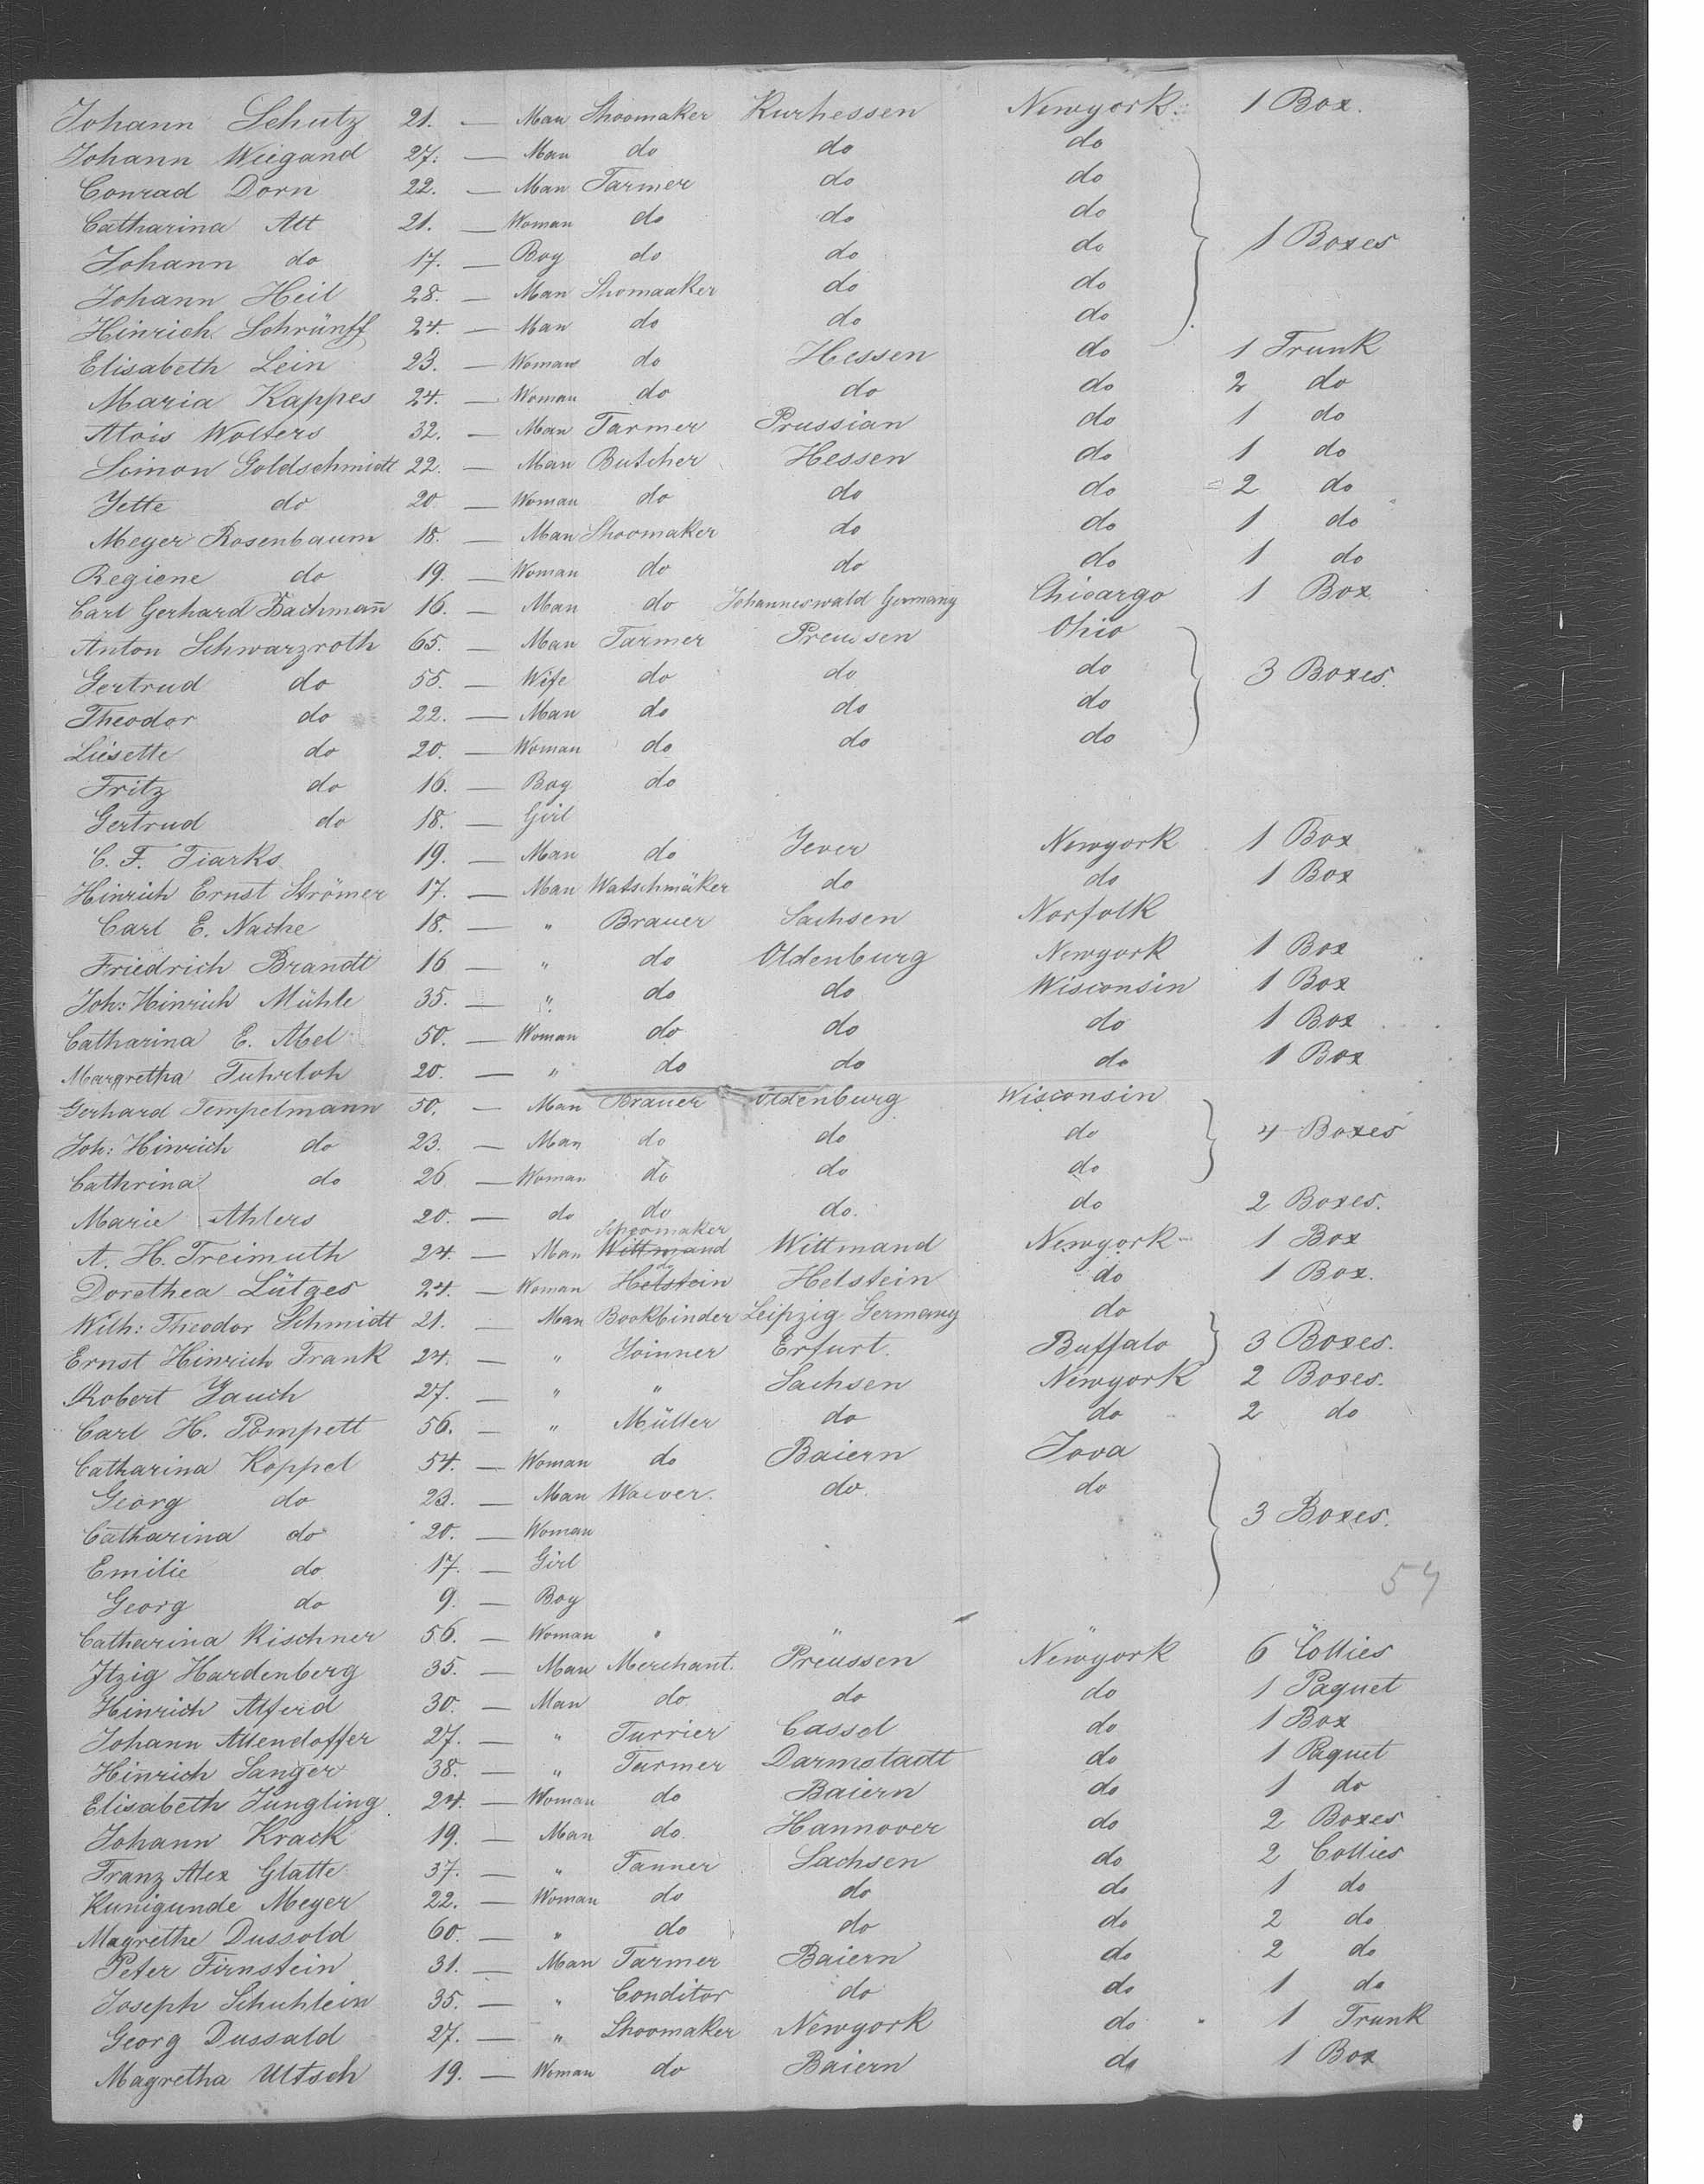 Johann Schutz 21. — Man Shoomaker Kurhessen Newyork 1 Box.
Johann Wiegand 27. — Man do do do
Conrad Dorn 22. — Man Farmer do do
Catharina Alt 21. — Woman do do do
Johann do 17. — Boy do do do 1 Boxes
Johann Heil 28. — Man Shomaaker do do
Hinrich Schrünff 24. — Man do do do
Elisabeth Lein 23. — Woman do Hessen do 1 Trunk
Maria Kappes 24. — Woman do do do 2 do
Alois Wolters 32. — Man Farmer Prussian do 1 do
Simon Goldschmidt 22. — Man Butcher Hessen do 1 do
Jette do 20. — Woman do do do 2 do
Meyer Rosenbaum 18. — Man Shoomaker do do 1 do
Regiene do 19. — Woman do do do 1 do
Carl Gerhard Bachmann 16. — Man do Johanneswald Germany Chicargo 1 Box
Anton Schwarzroth 65. — Man Farmer Preussen Ohio
Gertrud do 55. — Wife do do do 3 Boxes.
Theodor do 22. — Man do do do
Liesette do 20. — Woman do do do
Fritz do 16. — Boy do
Gertrud do 18. — Girl
C. F. Tiarks 19. — Man do Jever Newyork 1 Box
Hinrich Ernst Strömer 17. — Man Watschmäker do do 1 Box
Carl E. Nache 18. — " Brauer Sachsen Norfolk
Friedrich Brandt 16 — " do Oldenburg Newyork 1 Box
Joh: Hinrich Mühle 35. — " do do Wisconsin 1 Box
Catharina E. Abel 50. — Woman do do do 1 Box
Margretha Fuhrloh 20. — " do do do 1 Box
Gerhard Tempelmann 50. — Man Brauer Oldenburg Wisconsin
Joh: Hinrich do 23. — Man do do do 4 Boxes
Cathrina do 26 — Woman do do do
Marie Ahlers 20. — do do do. do 2 Boxes.
A. H. Freimuth 24. — Man Schoomaker Wittmand Wittmand Newyork 1 Box
Dorethea Lütges 24. — Woman do Helstein Helstein do 1 Box.
Wilh: Theodor Schmidt 21. — Man Bookbinder Leipzig Germany do
Ernst Hinrich Frank 24. — " Joinner Erfurt. Buffalo 3 Boxes.
Robert Jauch 27. — " " Sachsen Newyork 2 Boxes.
Carl H. Pompett 56. — " Müller do do 2 do
Catharina Koppel 54. — Woman do Baiern Jova
Georg do 23. — Man Waever. do do
Catharina do 20. — Woman 3 Boxes.
Emilie do 17. — Girl
Georg do 9. — Boy
Catharina Kischner 56. — Woman " " "
Itzig Hardenberg 35. — Man Merchant. Preussen Newyork 6 Collies
Hinrich Alferd 30. — Man do do do 1 Paquet
Johann Allendoffer 27. — " Furrier Cassel do 1 Box
Hinrich Sanger 38. — " Farmer Darmstadt do 1 Paquet
Elisabeth Jungling 24. — Woman do Baiern do 1 do
Johann Krack 19. — Man do. Hannover do 2 Boxes
Franz Alex Glatte 37. — " Tanner Sachsen do 2 Collies
Kunigunde Meyer 22. — Woman do do do 1 do
Magrethe Dussold 60. — " do do do 2 do
Peter Firnstein 31. — Man Farmer Baiern do 2 do
Joseph Schuhlein 35. — " Conditor do do 1 do
Georg Dussald 27. — " Shoomaker Newyork do 1 Trunk
Magretha Ultsch 19. — Woman do Baiern do 1 Box